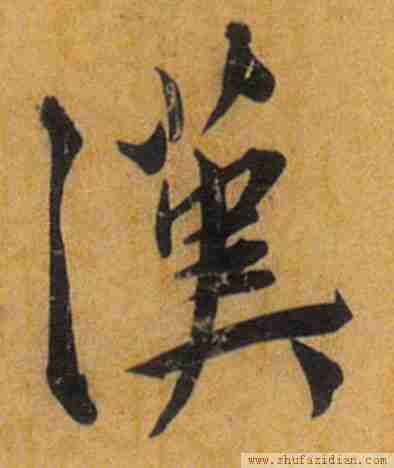 漢
www.shufazidian.com